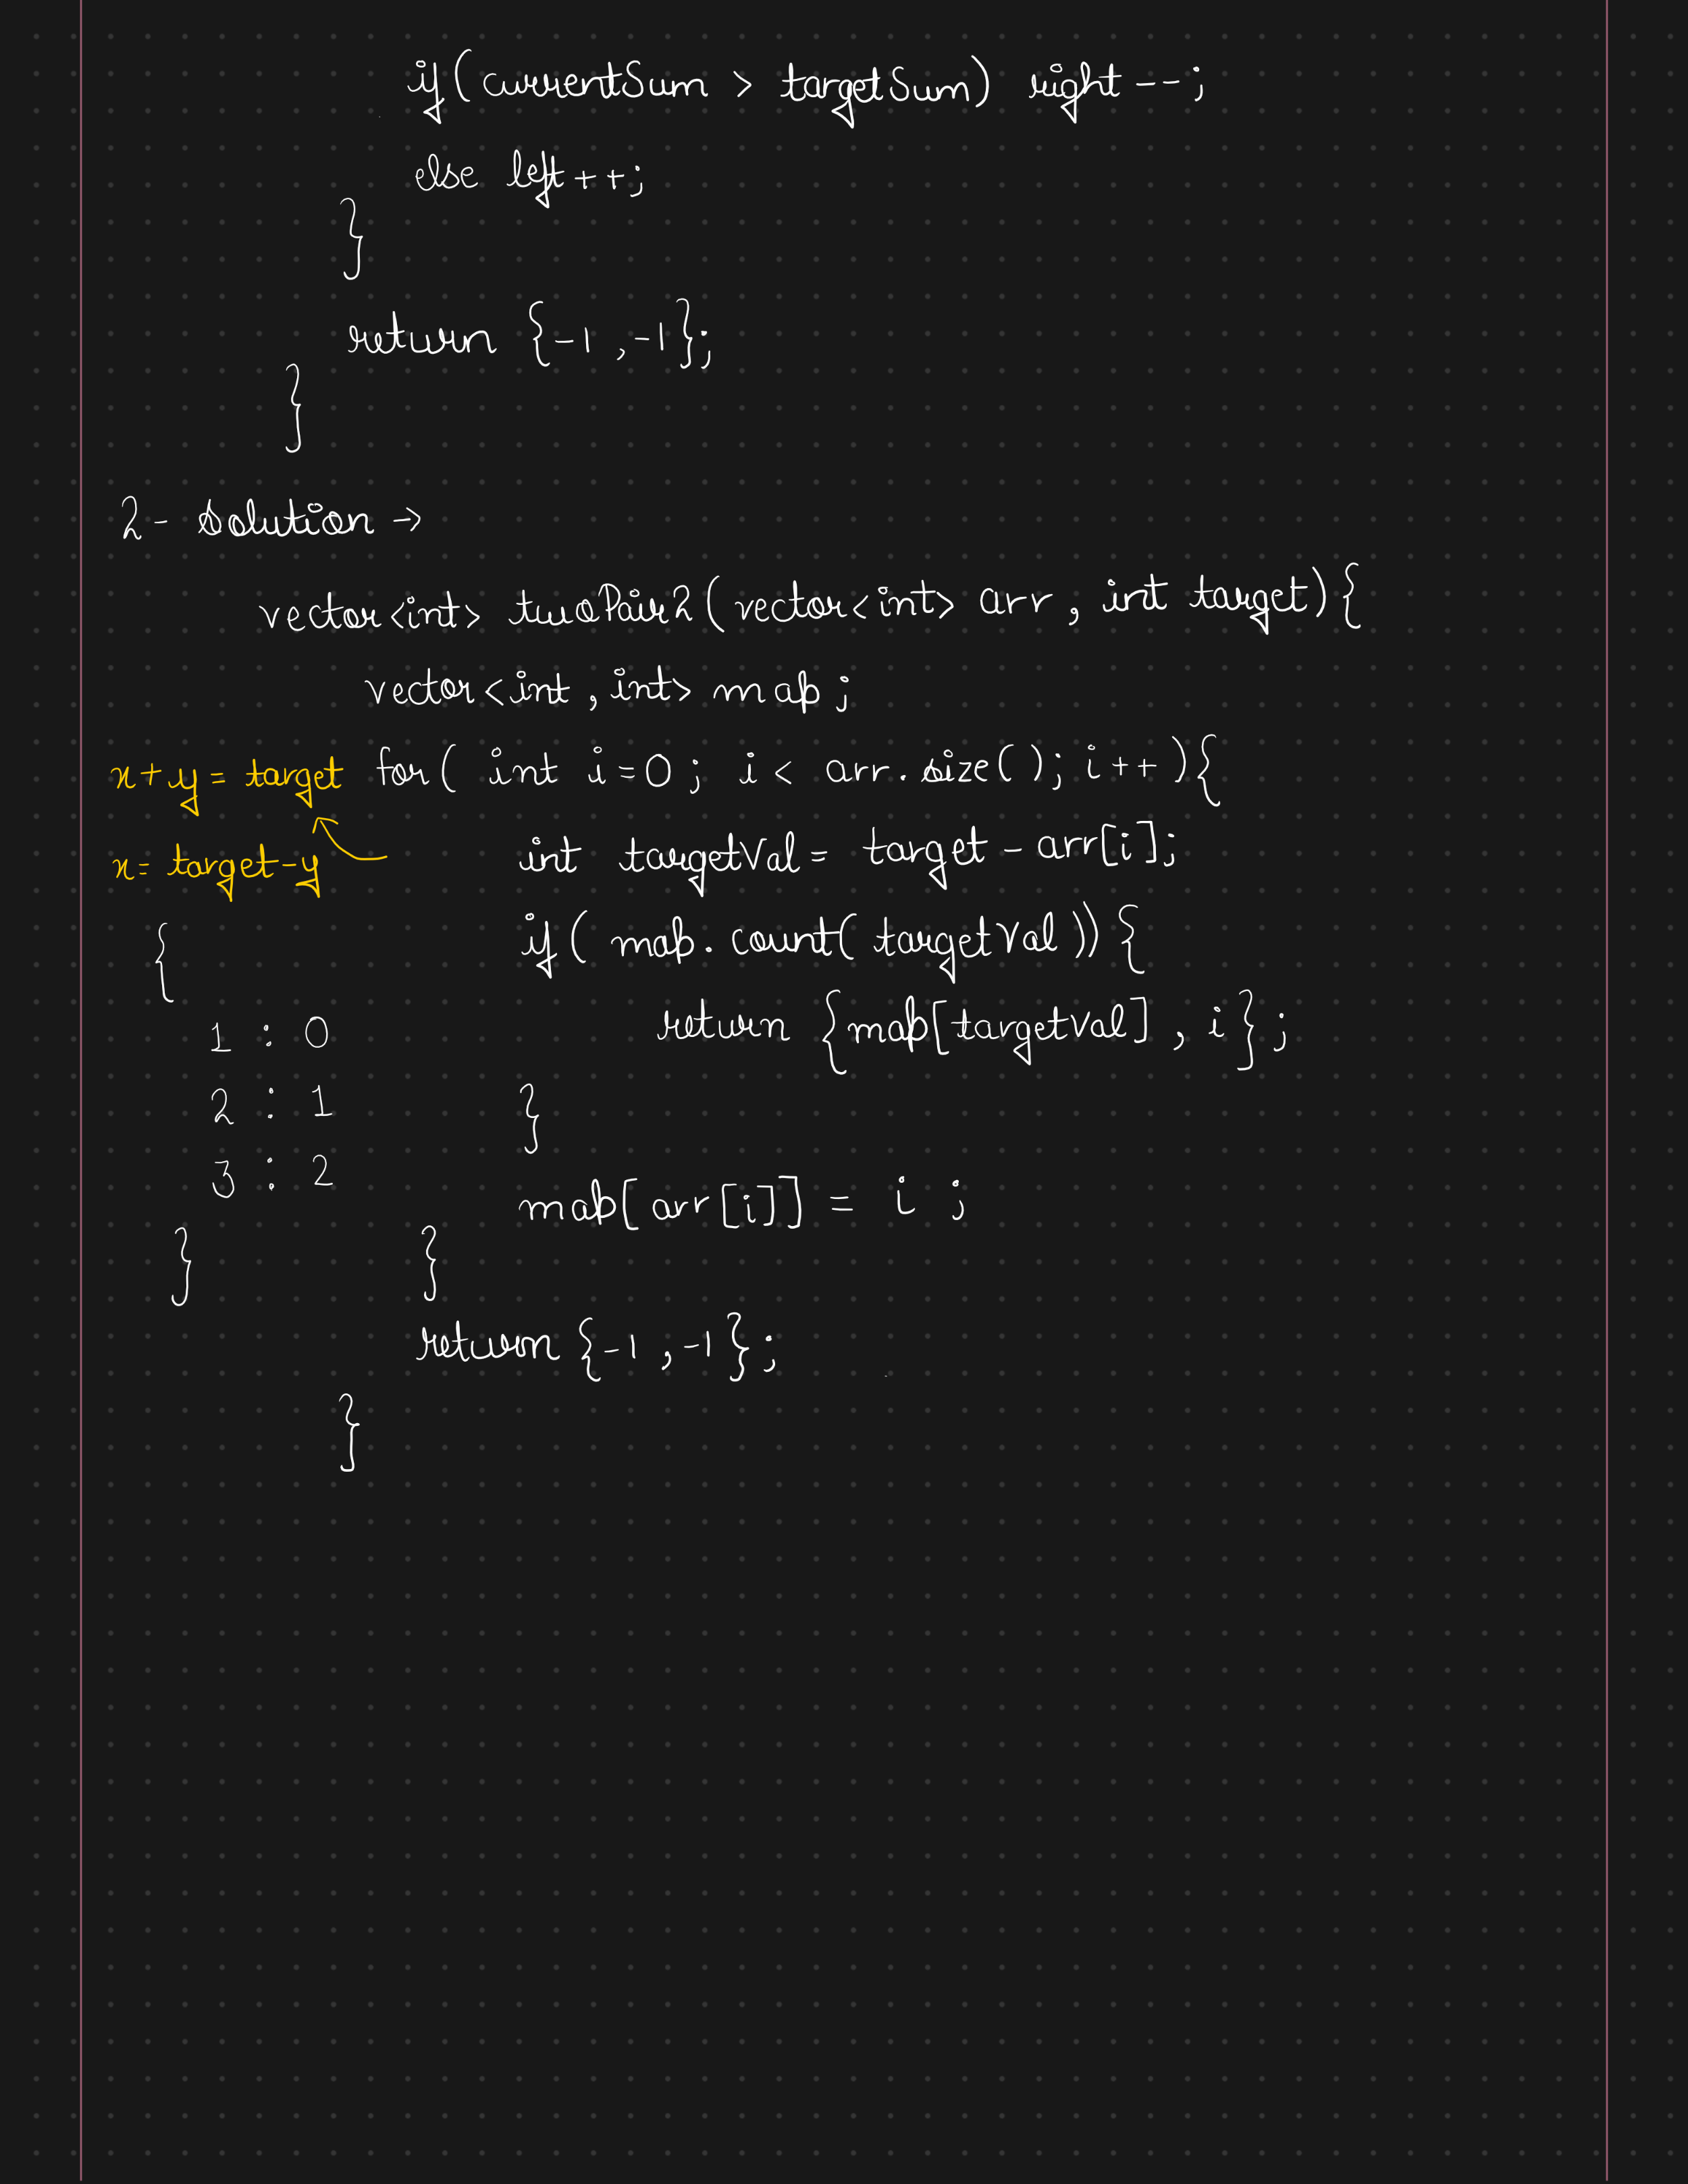 if(currentSum > targetSum) right--;
else left++;
}
return {-1,-1};
}
2- Solution ->
vector<int> twoPair2(vector<int> arr, int target){
vector<int, int> map;
x+y = target
for( int i=0; i < arr.size(); i++){
x= target-y
int targetVal = target - arr[i];
{
if( map.count(targetVal)){
1 : 0
return {map[targetVal], i};
2 : 1
}
3 : 2
map[arr[i]] = i ;
}
}
return {-1,-1};
}